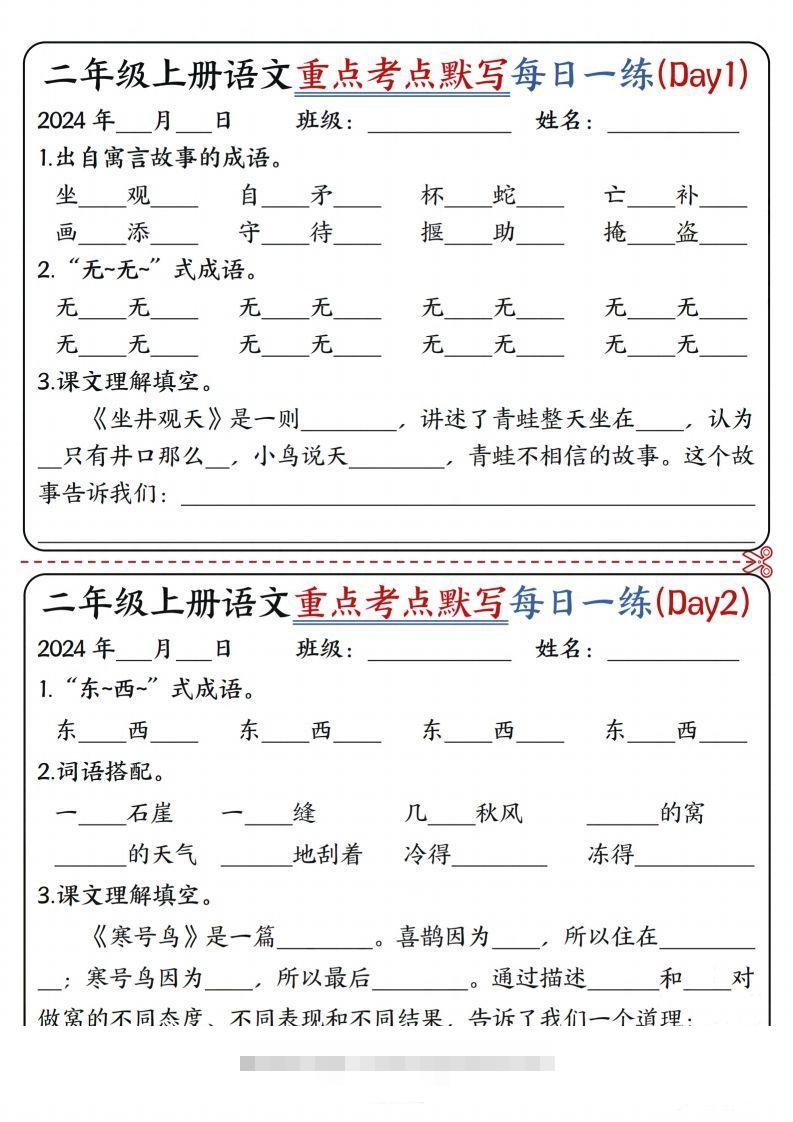 二年级上册语文重点考点默写每日一练(Day1)
2024年___月___日 班级：____________ 姓名：___________
1.出自寓言故事的成语。
坐____观____ 自____矛____ 杯____蛇____ 亡____补____
画____添____ 守____待____ 揠____助____ 掩____盗____
2.“无~无~”式成语。
无____无____ 无____无____ 无____无____ 无____无____
无____无____ 无____无____ 无____无____ 无____无____
3.课文理解填空。
《坐井观天》是一则________，讲述了青蛙整天坐在____，认为
__只有井口那么__，小鸟说天________，青蛙不相信的故事。这个故
事告诉我们：________________________________________________
____________________________________________________________
二年级上册语文重点考点默写每日一练(Day2)
2024年___月___日 班级：____________ 姓名：___________
1.“东~西~”式成语。
东____西____ 东____西____ 东____西____ 东____西____
2.词语搭配。
一____石崖 一____缝 几____秋风 ______的窝
______的天气 ______地刮着 冷得________ 冻得__________
3.课文理解填空。
《寒号鸟》是一篇________。喜鹊因为____，所以住在________
__；寒号鸟因为____，所以最后________。通过描述______和____对
做窝的不同态度、不同表现和不同结果，告诉了我们一个道理：